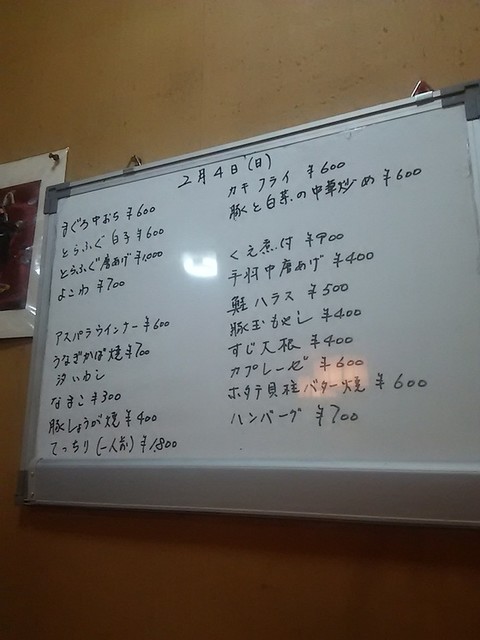 2月4日(日)
まぐろ中おち ¥600
とらふぐ白子 ¥600
とらふぐ唐あげ ¥1,000
よこわ ¥700
アスパラウインナー ¥600
うなぎかば焼 ¥700
汐いわし
なまこ ¥300
豚しょうが焼 ¥400
てっちり(一人前) ¥1,800
カキフライ ¥600
豚と白菜の中華炒め ¥600
くえ煮付 ¥900
手羽中唐あげ ¥400
鮭ハラス ¥500
豚玉もやし ¥400
すじ大根 ¥400
カプレーゼ ¥600
ホタテ貝柱バター焼 ¥600
ハンバーグ ¥700